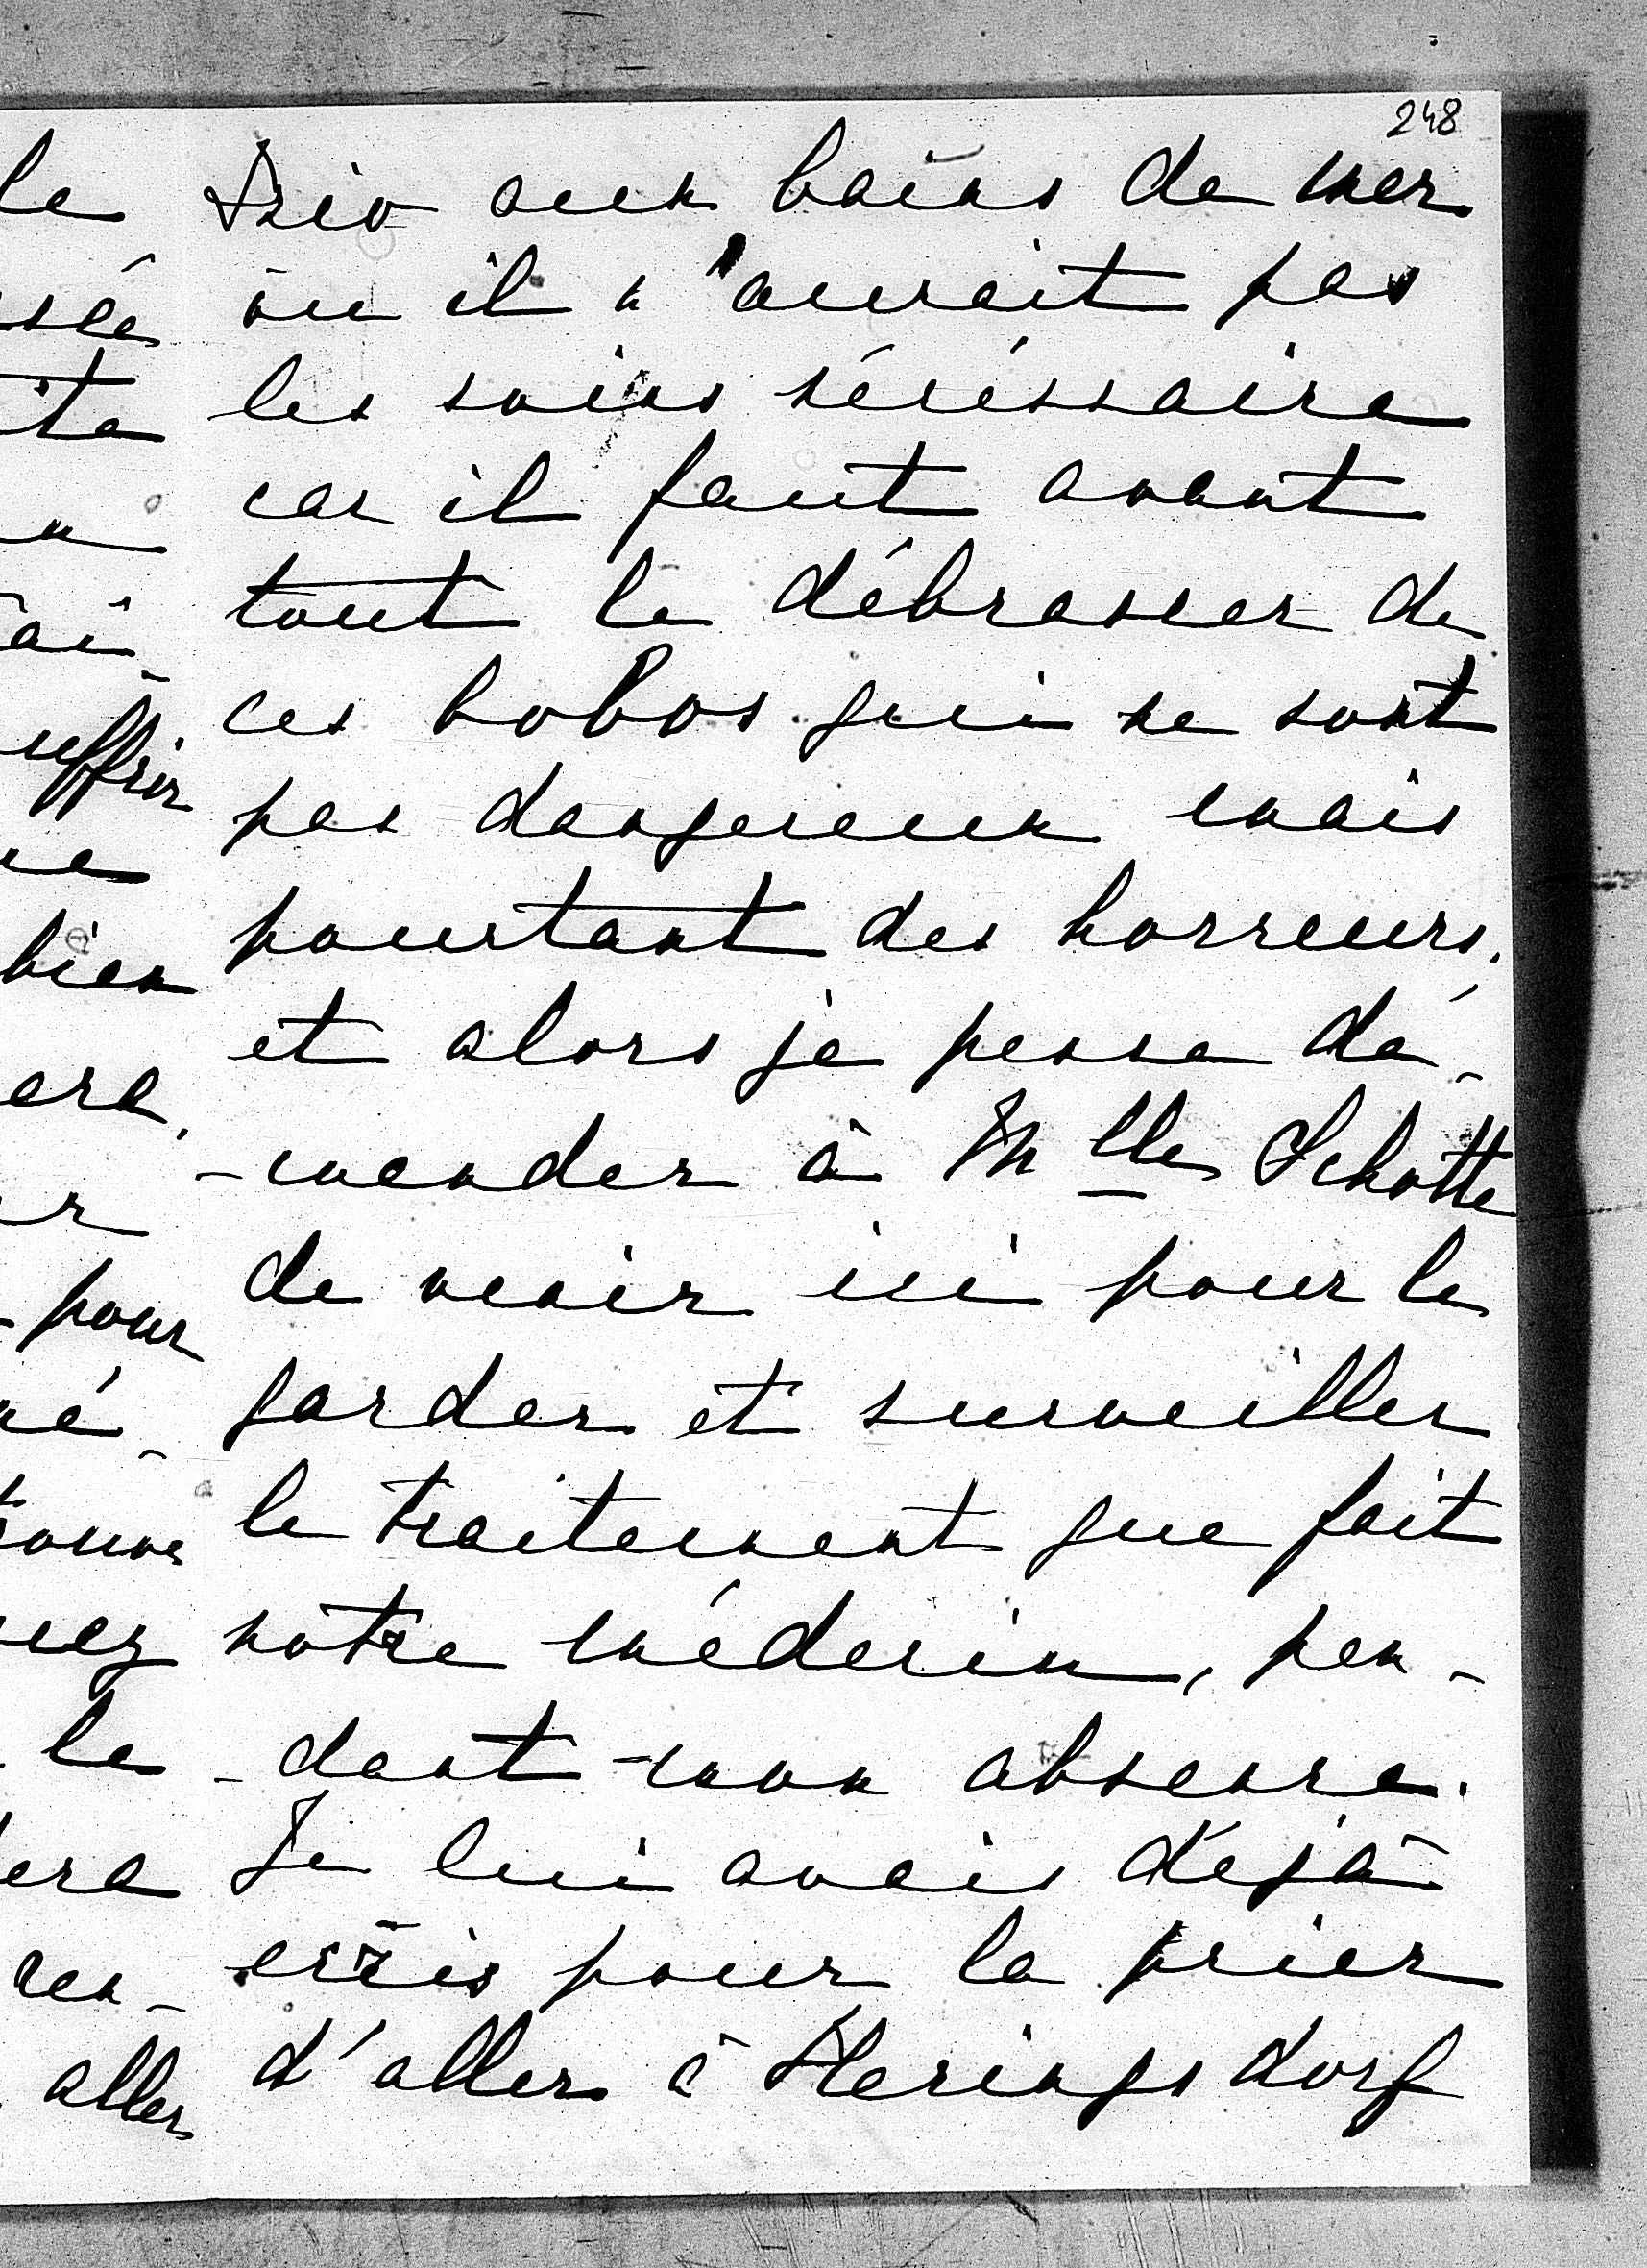 248
Trio aux bains de mer
où il n'aurait pas
les soins nécéssaire
car il faut avant
tout le débrasser de
ces bobos qui ne sont
pas dangereux mais
pourtant des horreurs.
et alors je pense dé-
-mender à Mlle Schotte
de venir ici pour le
garder et surveiller
le traitement que fait
notre médecin, pen-
-dant mon absence.
Je lui avais déjà
écris pour la prier
d'aller à Heringsdorf
le
ai-
bien
pour
le
ren-
aller